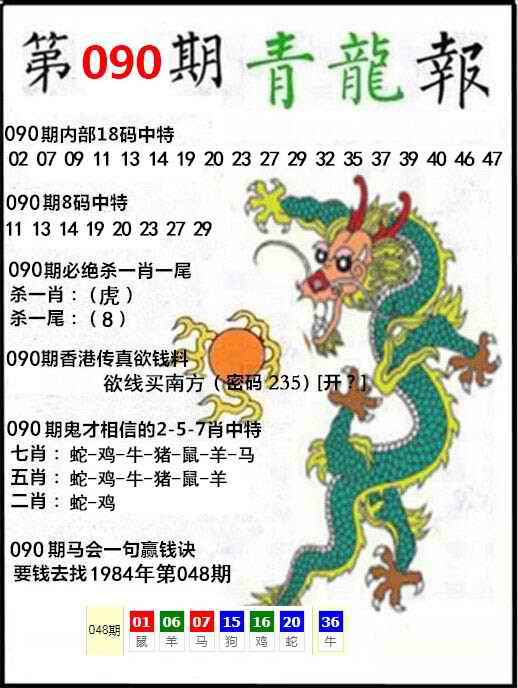 第090期青龍報
090期内部18码中特
02 07 09 11 13 14 19 20 23 27 29 32 35 37 39 40 46 47
090期8码中特
11 13 14 19 20 23 27 29
090期必绝杀一肖一尾
杀一肖：（虎）
杀一尾：（8）
090期香港传真欲钱料
欲线买南方（密码 235）[开？]
090期鬼才相信的2-5-7肖中特
七肖：蛇-鸡-牛-猪-鼠-羊-马
五肖：蛇-鸡-牛-猪-鼠-羊
二肖：蛇-鸡
090期马会一句赢钱诀
要钱去找1984年第048期
048期 01 06 07 15 16 20 36
鼠 羊 马 狗 鸡 蛇 牛